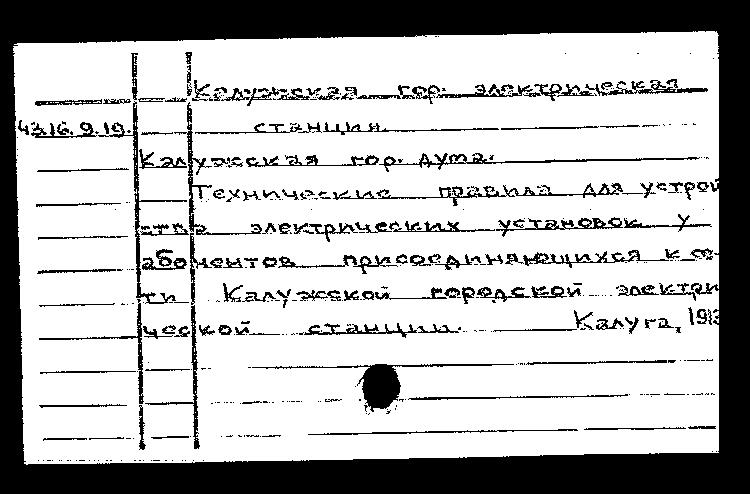 Калужская гор. электрическая
43.16.9.19. станция.
Калужсская гор. дума.
Технические правила для устрой
ства электрических установок у
абонентов присоединяющихся к се-
ти Калужской городской электри
ческой станции. Калуга, 1913